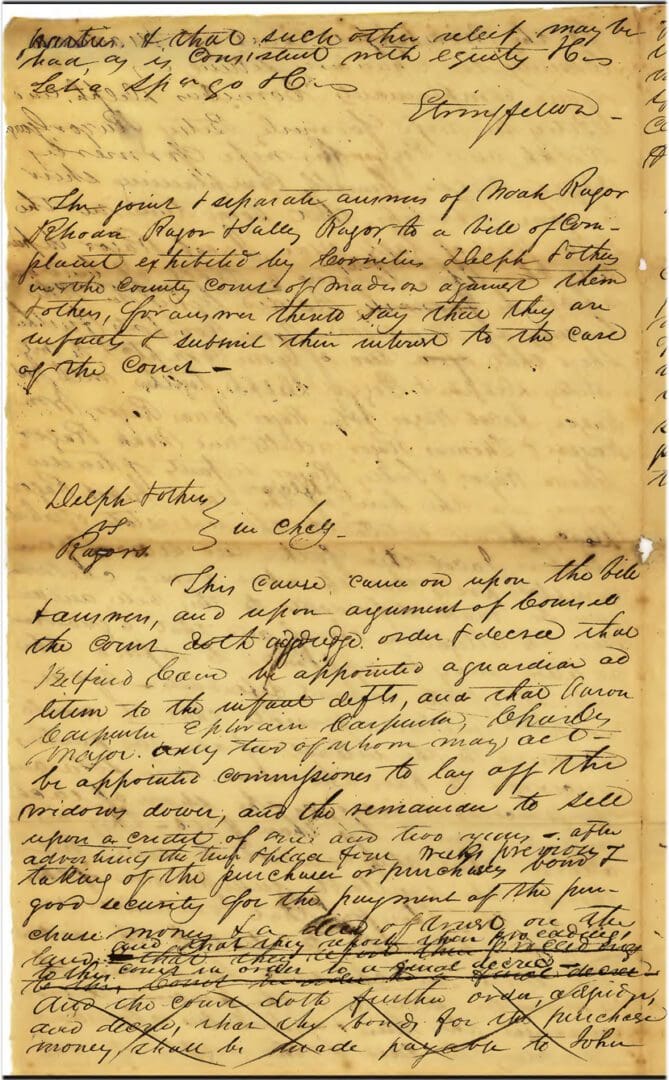 parties & that such other relief may be
had, as is consistent with equity &c
Let a Sp a go &c
Stringfellow
The joint & separate answers of Noah Razor
Rhoda Razor & Sally Razor, to a bill of Com-
plaint exhibited by Cornelius Delph & others
in the County Court of Madison against them
& others, for answer thereto say that they are
infants & submit their interest to the care
of the Court —
Delph & others
vs
Razors
in Chy —
This cause came on upon the bill
& answers, and upon argument of Counsel
the court doth adjudge order & decree that
Belfield Cave be appointed a guardian ad
litem to the infant defts, and that Aaron
Carpenter Ephraim Carpenter, Charles
Major any two of whom may act —
be appointed commissioners to lay off the
widows dower, and the remainder to sell
upon a credit of one and two years — after
advertising the time & place four weeks previously
taking of the purchaser or purchasers bond &
good security for the payment of the pur-
chase money & a deed of trust on the
land, and that they report their proceedings
that they report their proceedings
to this court in order to a final decree —
to this Court in order to a final decree —
And the court doth further order, adjudge,
and decree, that the bonds for the purchase
money shall be made payable to John